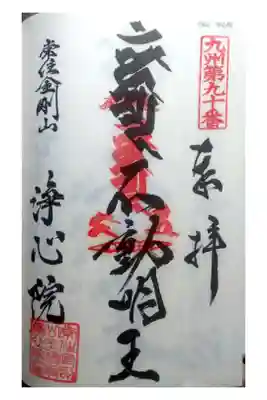 九州第九十番
奉拝
不動明王
常住金剛山
浄心院